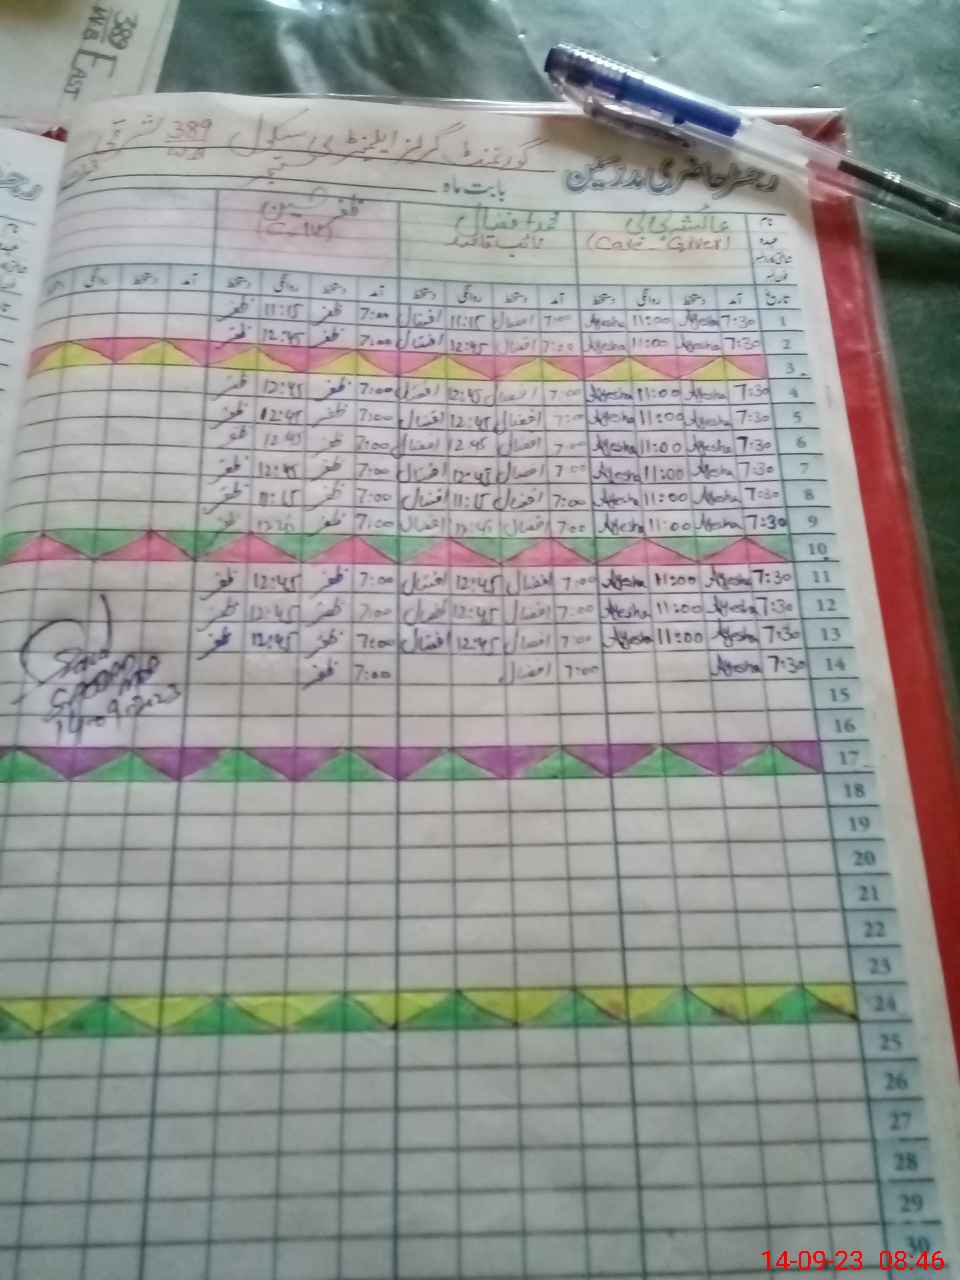 389
W.B EAST
گورنمنٹ گرلز ایلیمنٹری سکول 389 W.B شرقی
رجسٹر حاضری مدرسین بابت ماہ ستمبر
نام عائشہ بی بی محمد افضال ظفر حسین
عہدہ (Care_Giver) نائب قاصد
تاریخ آمد دستخط روانگی دستخط آمد دستخط روانگی دستخط آمد دستخط روانگی دستخط آمد دستخط روانگی
1 7:30 Ayesha 11:00 Ayesha 7:00 افضال 11:15 افضال 7:00 ظفر 11:15 ظفر
2 7:30 Ayesha 11:00 Ayesha 7:00 افضال 12:45 افضال 7:00 ظفر 12:45 ظفر
3
4 7:30 Ayesha 11:00 Ayesha 7:00 افضال 12:45 افضال 7:00 ظفر 12:45 ظفر
5 7:30 Ayesha 11:00 Ayesha 7:00 افضال 12:45 افضال 7:00 ظفر 12:45 ظفر
6 7:30 Ayesha 11:00 Ayesha 7:00 افضال 12:45 افضال 7:00 ظفر 12:45 ظفر
7 7:30 Ayesha 11:00 Ayesha 7:00 افضال 12:45 افضال 7:00 ظفر 12:45 ظفر
8 7:30 Ayesha 11:00 Ayesha 7:00 افضال 11:15 افضال 7:00 ظفر 11:15 ظفر
9 7:30 Ayesha 11:00 Ayesha 7:00 افضال 12:45 افضال 7:00 ظفر ظفر
10
11 7:30 Ayesha 11:00 Ayesha 7:00 افضال 12:45 افضال 7:00 ظفر 12:45 ظفر
12 7:30 Ayesha 11:00 Ayesha 7:00 افضال 12:45 افضال 7:00 ظفر 12:45 ظفر
13 7:30 Ayesha 11:00 Ayesha 7:00 افضال 12:45 افضال 7:00 ظفر 12:45 ظفر
14 7:30 Ayesha 7:00 افضال 7:00 ظفر
15
16
14-09-2023
17
18
19
20
21
22
23
24
25
26
27
28
29
30
14-09-23 08:46